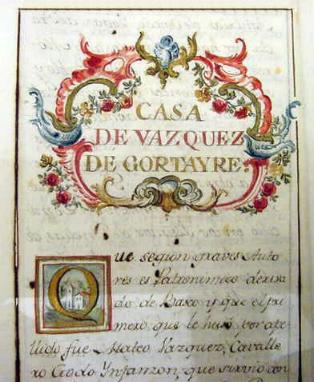 CASA
DE VAZQUEZ
DE GORTAYRE.
Que segun graves Auto
res es Patronimico deriva
do de Basco y que el pri
mero, que le huso, por ape
llido fue Mateo Vazquez, Cavalle
ro Godo Ynfanzon, que sirvio con